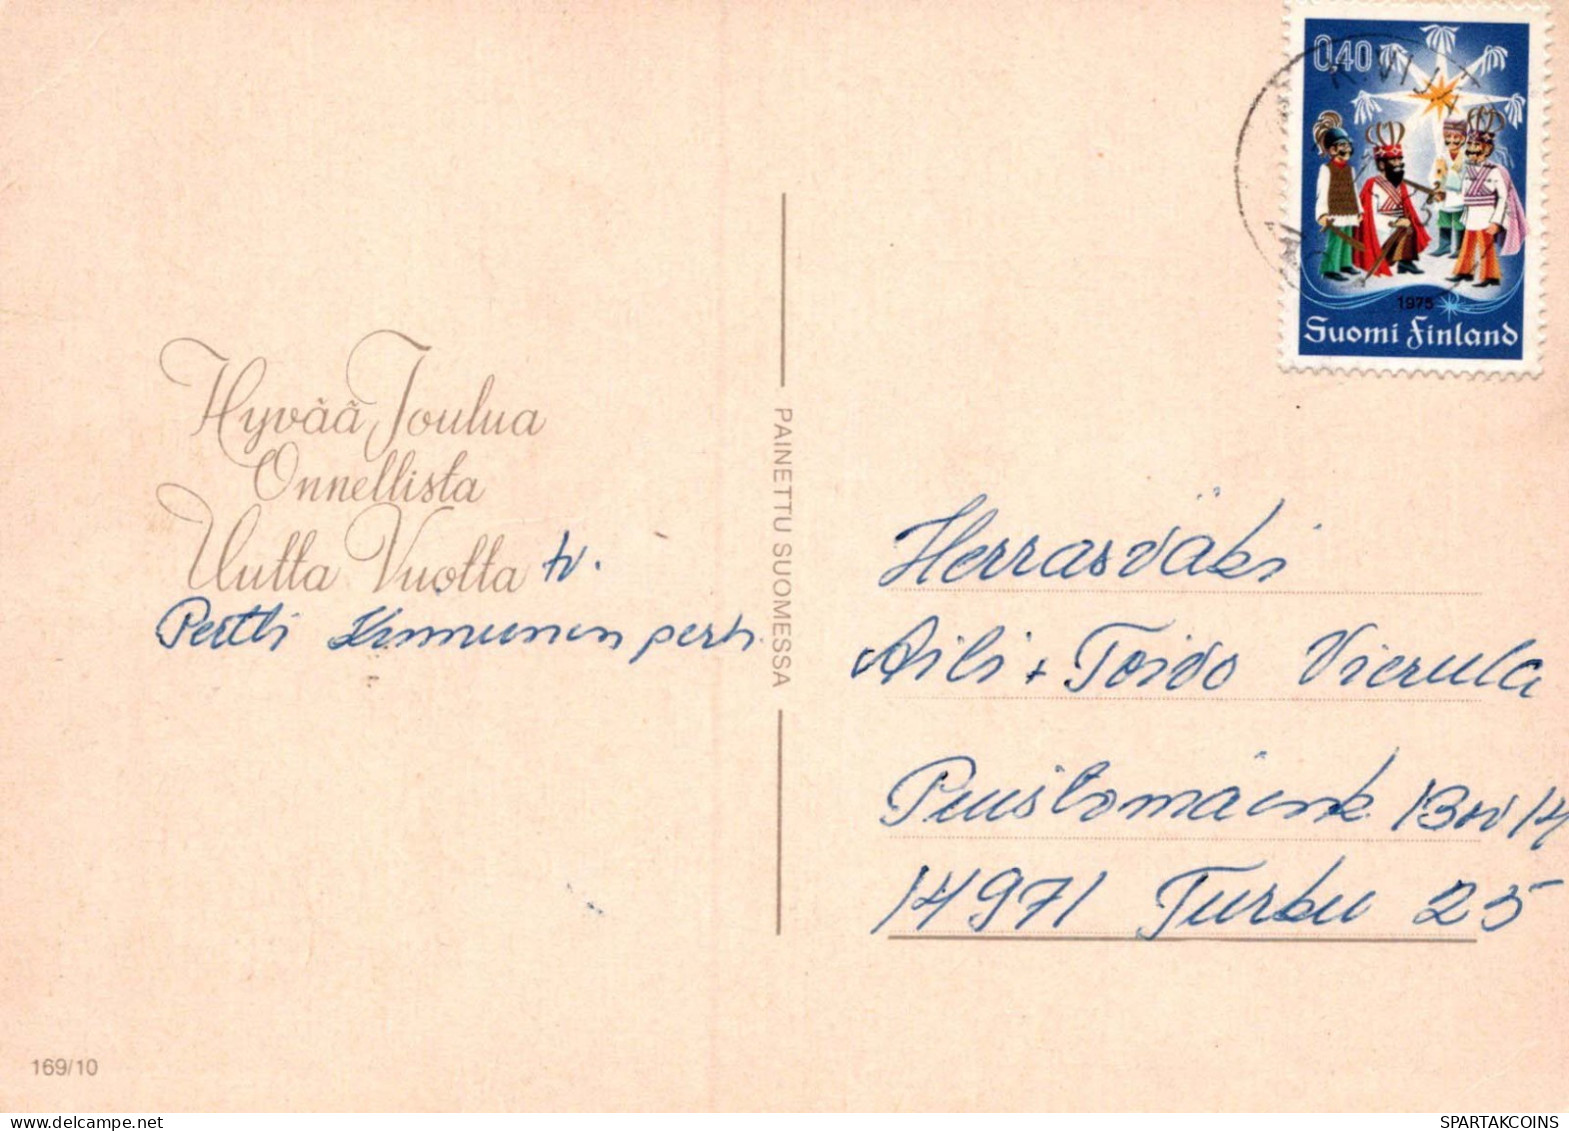 0,40
1975
Suomi Finland
Hyvää Joulua
Onnellista
Uutta Vuotta tv.
Pertti Kinnunen pert.
PAINETTU SUOMESSA
Herrasväki
Aili + Toivo Vierula
Puistomäenk 13 14
14971 Turku 25
169/10
SPARTAKCOINS